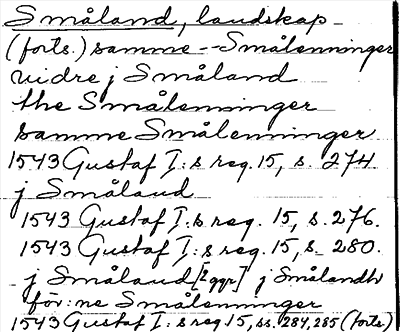 Småland, landskap -
(forts.) samme -- Smålenninger
vidre j Småland
the Smålenninger
samme Smålenninger
1543 Gustaf I:s reg. 15, s. 274
j Småland
1543 Gustaf I:s reg. 15, s. 276.
1543 Gustaf I:s reg. 15, s. 280.
j Småland [2 ggr] j Smålandh
for:ne Smålenninger
1543 Gustaf I:s reg 15, ss. 284, 285 (forts)